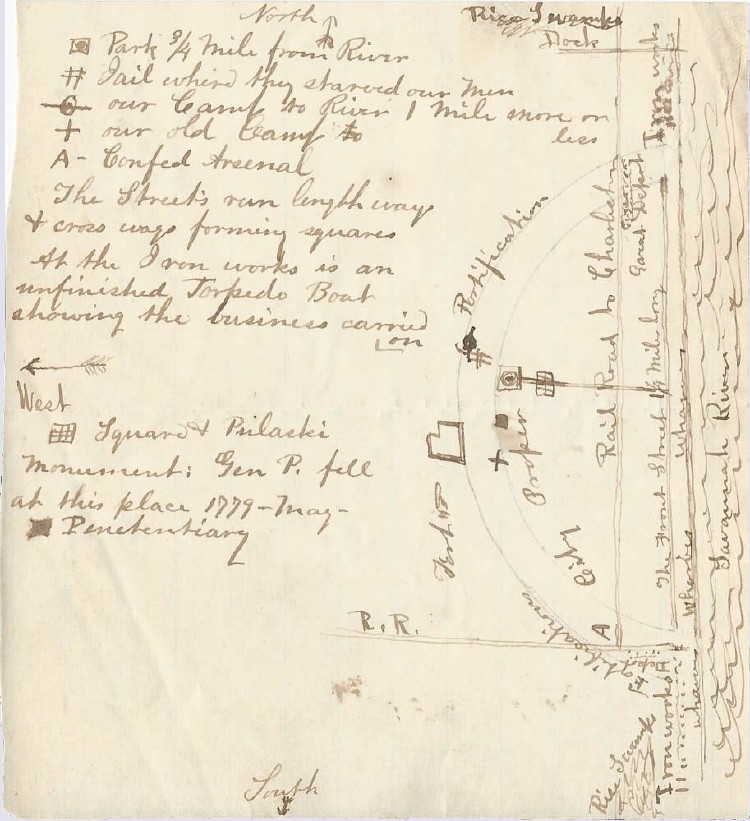 North
Rice Swamps
Dock
Park 3/4 Mile from River
# Jail where they starved our Men
our Camp to River 1 Mile more or less
+ our old Camp to
A - Confed Arsenal
The Street's run length ways
& cross ways forming squares
At the Iron works is an
unfinished Torpedo Boat
showing the business carried
on
West
Square & Pulaski
Monument: Gen P. fell
at this place 1779 - May -
Penetentiary
Iron works
Fortification
Rail Road to Charleston
Canal Depot
The Front Street 1 1/4 Mile long
Wharves
Savannah River
City Proper
Fort
Wharves
R. R.
A
Fortifications
Depot
Iron works
Wharves
Rice Swamps
South